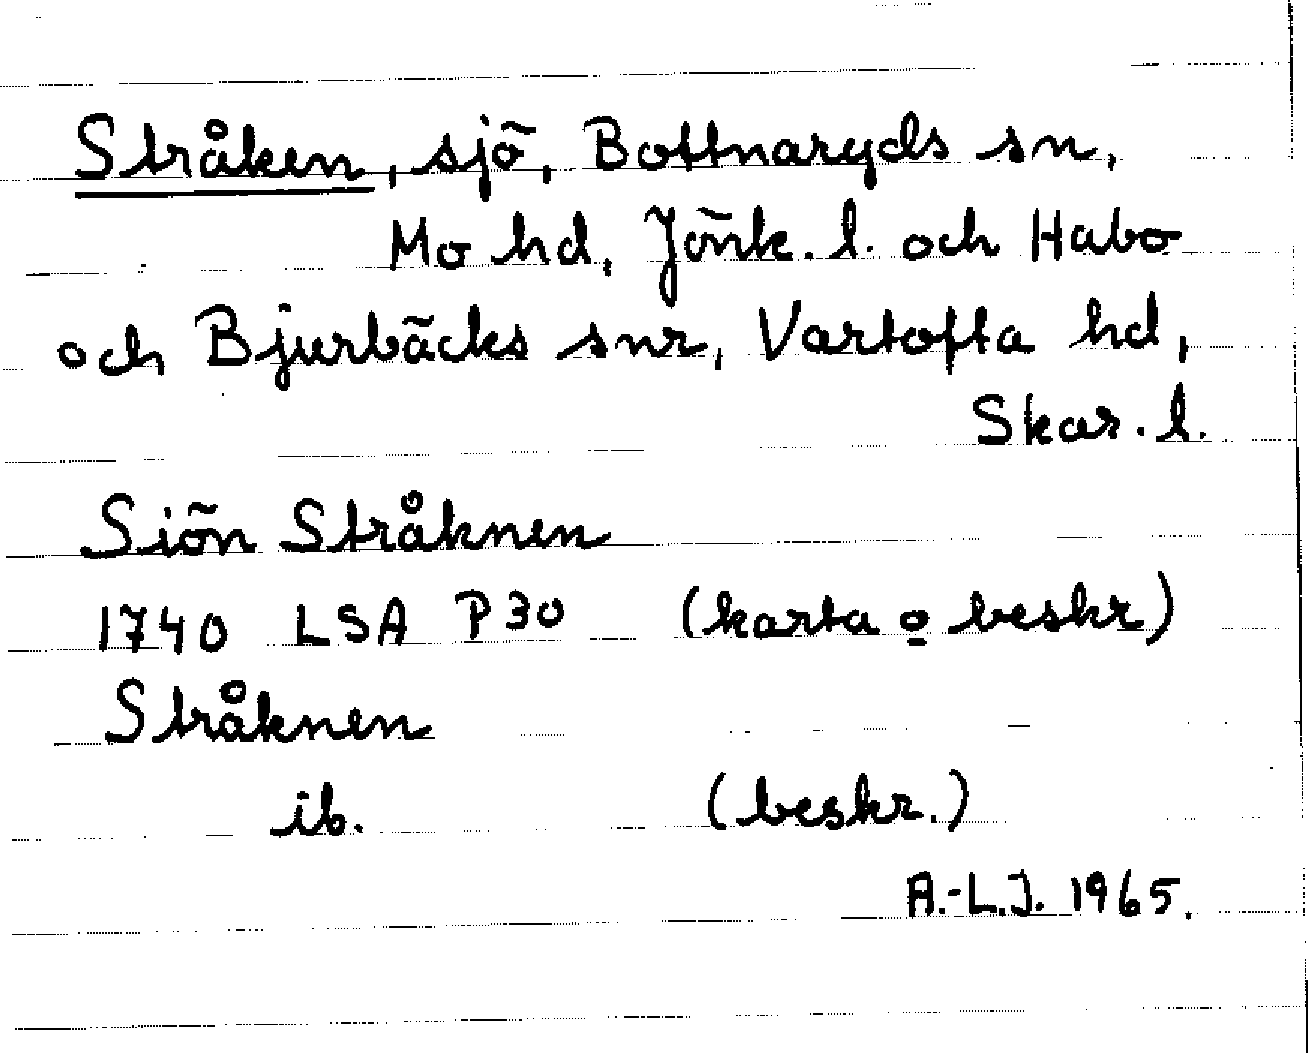 Stråken, sjö, Bottnaryds sn,
Mo hd, Jönk. l. och Habo
och Bjurbäcks snr, Vartofta hd,
Skar. l.
Siön Stråknen
1740 LSA P30 (karta o beskr)
Stråknen
ib. (beskr.)
A.-L.J. 1965.